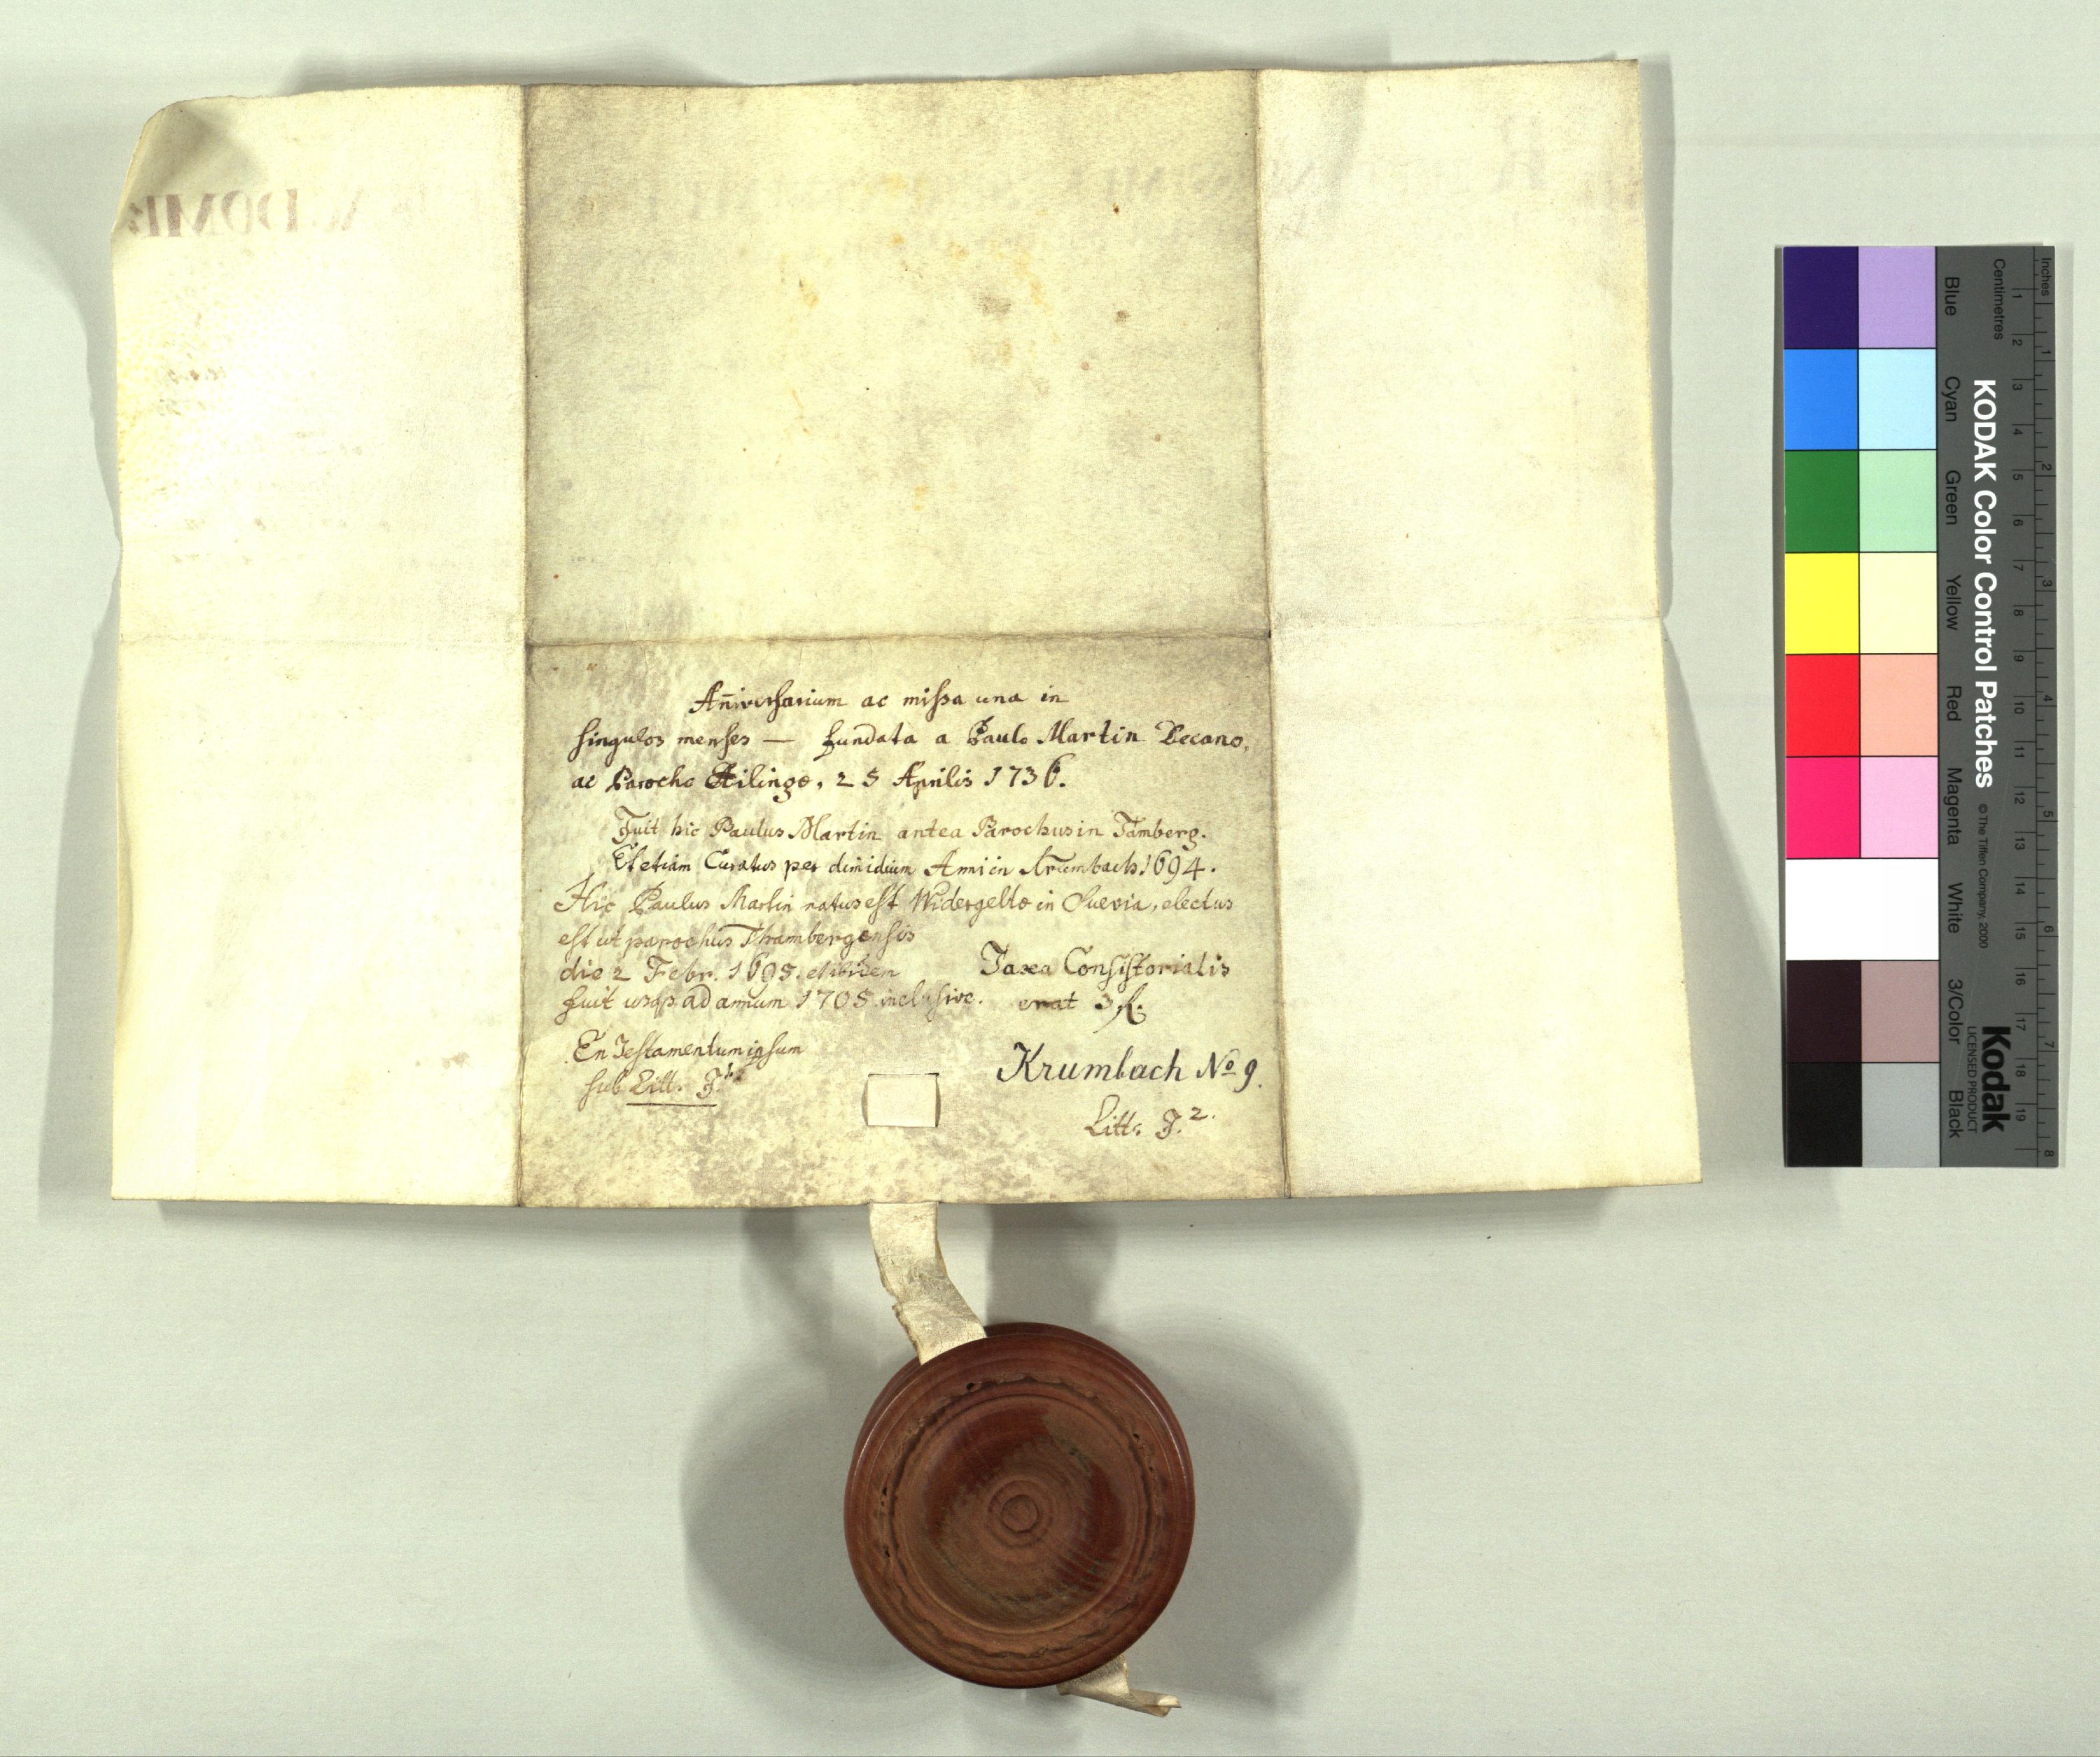 Añiversarium ac missa una in
singulos menses — fundata a Paulo Martin Decano,
ac Parocho Ailingæ, 25 Aprilis 1736.
Fuit hic Paulus Martin antea Parochus in Tamberg.
Et etiam Curatus per dimidium Anni in Krumbach 1694.
Hic Paulus Martin natus est Widergeltæ in Suevia, electus
est ut parochus Thambergensis
die 2 Febr. 1695. et ibidem
fuit usq. ad annum 1705 inclusive.
Taxa Consistorialis
erat 3 fl.
En Testamentum ipsum
sub Litt. J.1.
Krumbach No 9.
Litt. J.2.
DOMI
Inches
Centimetres
KODAK Color Control Patches
© The Tiffen Company, 2000
Kodak
LICENSED PRODUCT
Blue
Cyan
Green
Yellow
Red
Magenta
White
3/Color
Black
1 2 3 4 5 6 7 8 9 10 11 12 13 14 15 16 17 18 19
1 2 3 4 5 6 7 8